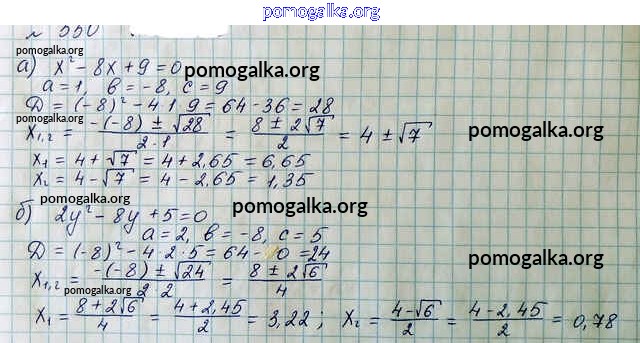 pomogalka.org
а) x² - 8x + 9 = 0 pomogalka.org
pomogalka.org
a = 1, b = -8, c = 9
D = (-8)² - 4·1·9 = 64 - 36 = 28
pomogalka.org
x₁,₂ = (-(-8) ± √28)/(2·1) = (8 ± 2√7)/2 = 4 ± √7 pomogalka.org
x₁ = 4 + √7 = 4 + 2,65 = 6,65
x₂ = 4 - √7 = 4 - 2,65 = 1,35
pomogalka.org
б) 2y² - 8y + 5 = 0 pomogalka.org
a = 2, b = -8, c = 5
D = (-8)² - 4·2·5 = 64 - 0 = 24
x₁,₂ = (-(-8) ± √24)/(2·2) = (8 ± 2√6)/4 pomogalka.org
pomogalka.org
x₁ = (8 + 2√6)/4 = (4 + 2,45)/2 = 3,22; x₂ = (4 - √6)/2 = (4 - 2,45)/2 = 0,78